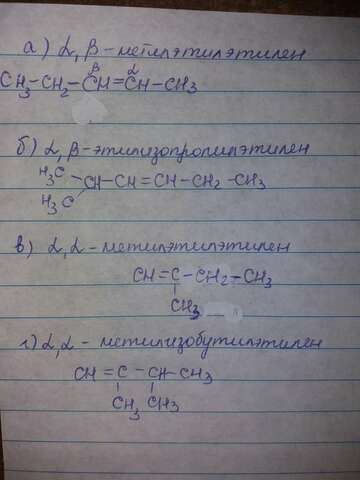 а) α, β - метилэтилэтилен
β α
CH₃-CH₂-CH=CH-CH₃
б) α, β - этилизопропилэтилен
H₃C
CH-CH=CH-CH₂-CH₃
H₃C
в) α, α - метилэтилэтилен
CH=C-CH₂-CH₃
CH₃
г) α, α - метилизобутилэтилен
CH=C-CH-CH₃
CH₃ CH₃